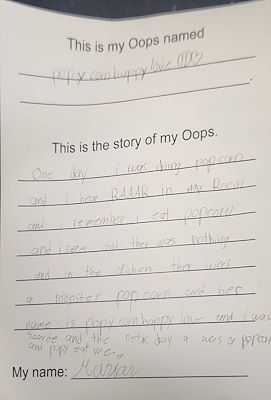 This is my Oops named
popy corn happy love
This is the story of my Oops.
One day i was duing popcorn
and i hear RAAAR in my Room
and i remember i eat popcorn
and i see and ther was nothing
and in the cichen ther was
a monster popcorn and her
name is popy corn happy love and i was
scarde and the netx day a was a popcorn
and popy eat me.
My name: Mariar